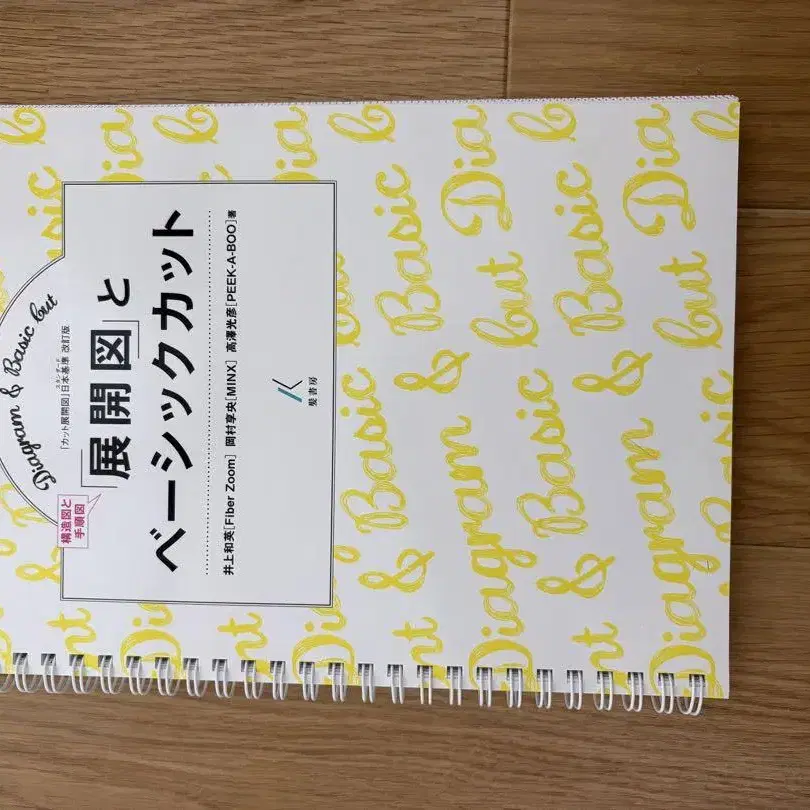 Diagram & Basic Cut
「カット展開図」日本基準 改訂版
スタンダード
構造図と
手順図
「展開図」と
ベーシックカット
井上和英[Fiber Zoom] 岡村享央[MINX] 高澤光彦[PEEK-A-BOO]著
髪書房
Basic
Diagram & Basic
Cut Dia
& Basic
Diagram & Basic
Cut Dia